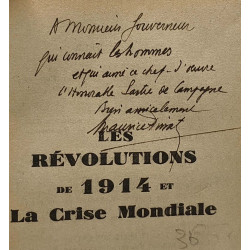 A Monsieur Gouverneur
qui connait les hommes
et qui aime ce chef-d'œuvre
l'Honorable de Campagne
Bien amicalement
Maurice
LES
RÉVOLUTIONS
DE 1914 ET
La Crise Mondiale
35